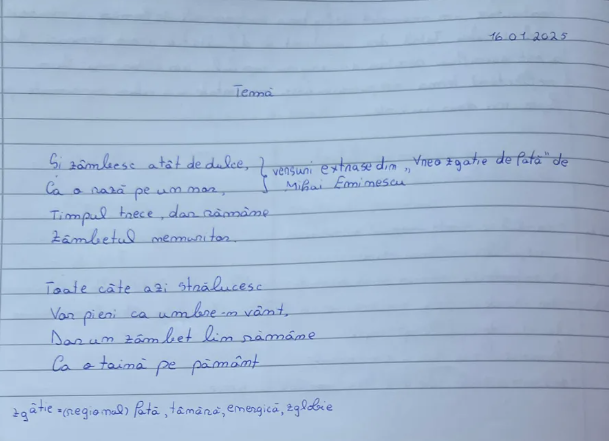 16.01.2025
Temă
Și zâmbesc atât de dulce, } versuri extrase din „Vreo zgâtie de fată" de
Ca o rază pe un nor. Mihai Eminescu
Timpul trece, dar rămâne
Zâmbetul nemuritor.
Toate câte azi strălucesc
Vor pieri ca umbre-n vânt,
Dar un zâmbet lin rămâne
Ca o taină pe pământ
zgâtie = (regional) fată, tânără, energică, zglobie